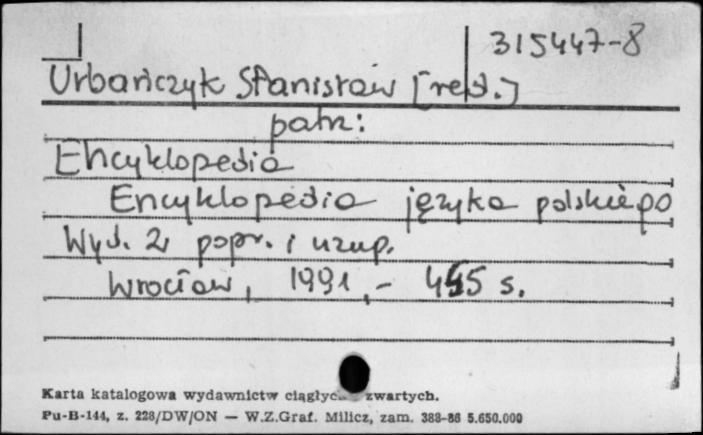 315447-8
Urbańczyk Stanisław [red.]
patrz:
Encyklopedia
Encyklopedia języka polskiego
Wyd. 2 popr. i uzup.
Wrocław, 1991,- 455 s.
Karta katalogowa wydawnictw ciągłyc zwartych.
Pu-B-144, z. 228/DW/ON — W.Z.Graf. Milicz, zam. 388-86 5.650.000